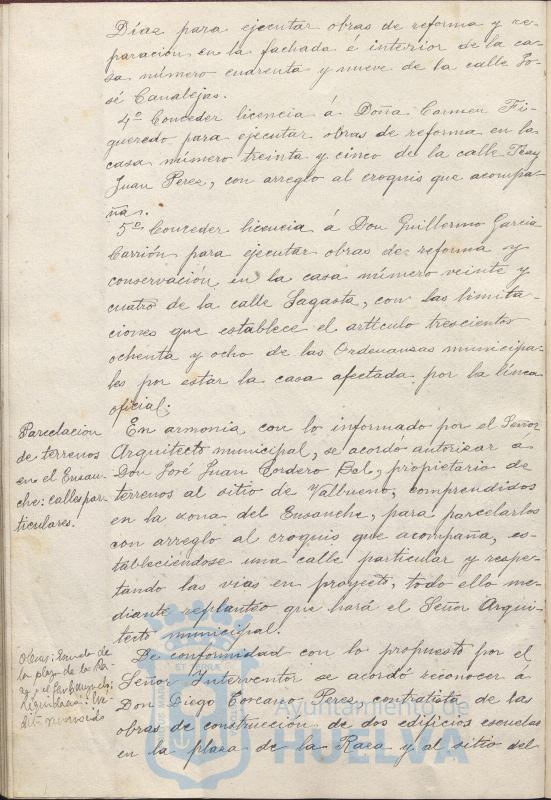 Díaz para ejecutar obras de reforma y re-
paración en la fachada é interior de la ca-
sa número cuarenta y nueve de la calle Jo-
sé Canalejas.
4º Conceder licencia á Doña Carmen Fi-
queredo para ejecutar obras de reforma en la
casa número treinta y cinco de la calle Fray
Juan Perez, con arreglo al croquis que acompa-
ña.
5º Conceder licencia á Don Guillermo García
Carrión para ejecutar obras de reforma y
conservación en la casa número veinte y
cuatro de la calle Sagasta, con las limita-
ciones que establece el artículo trescientos
ochenta y ocho de las Ordenanzas municipa-
les por estar la casa afectada por la línea
oficial.
Parcelacion
de terrenos
en el Ensan-
che: calles par-
ticulares.
En armonía con lo informado por el Señor
Arquitecto municipal, se acordó autorizar a
Don José Juan Cordero Bel, propietario de
terrenos al sitio de Valbueno, comprendidos
en la zona del Ensanche, para parcelarlos
con arreglo al croquis que acompaña, es-
tableciéndose una calle particular y respe-
tando las vías en proyecto, todo ello me-
diante replanteo que hará el Señor Arqui-
tecto municipal.
Obras: Escuela de
la plaza de la
Liquidación:
De conformidad con lo propuesto por el
Señor Interventor se acordó reconocer a
Don Diego Toscano Perez, contratista de las
obras de construcción de dos edificios escuelas
en la plaza de la Raza y al sitio del
Ayuntamiento de
HUELVA